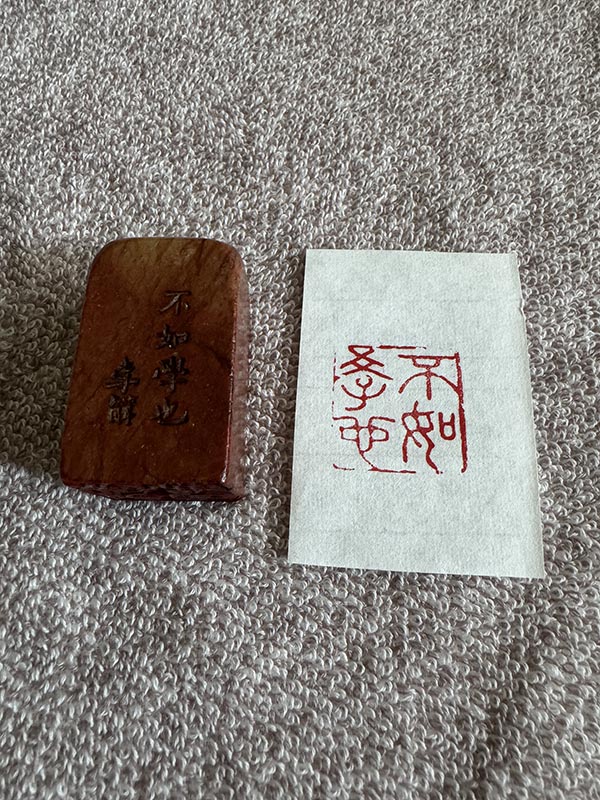 不如學也
不如
學也